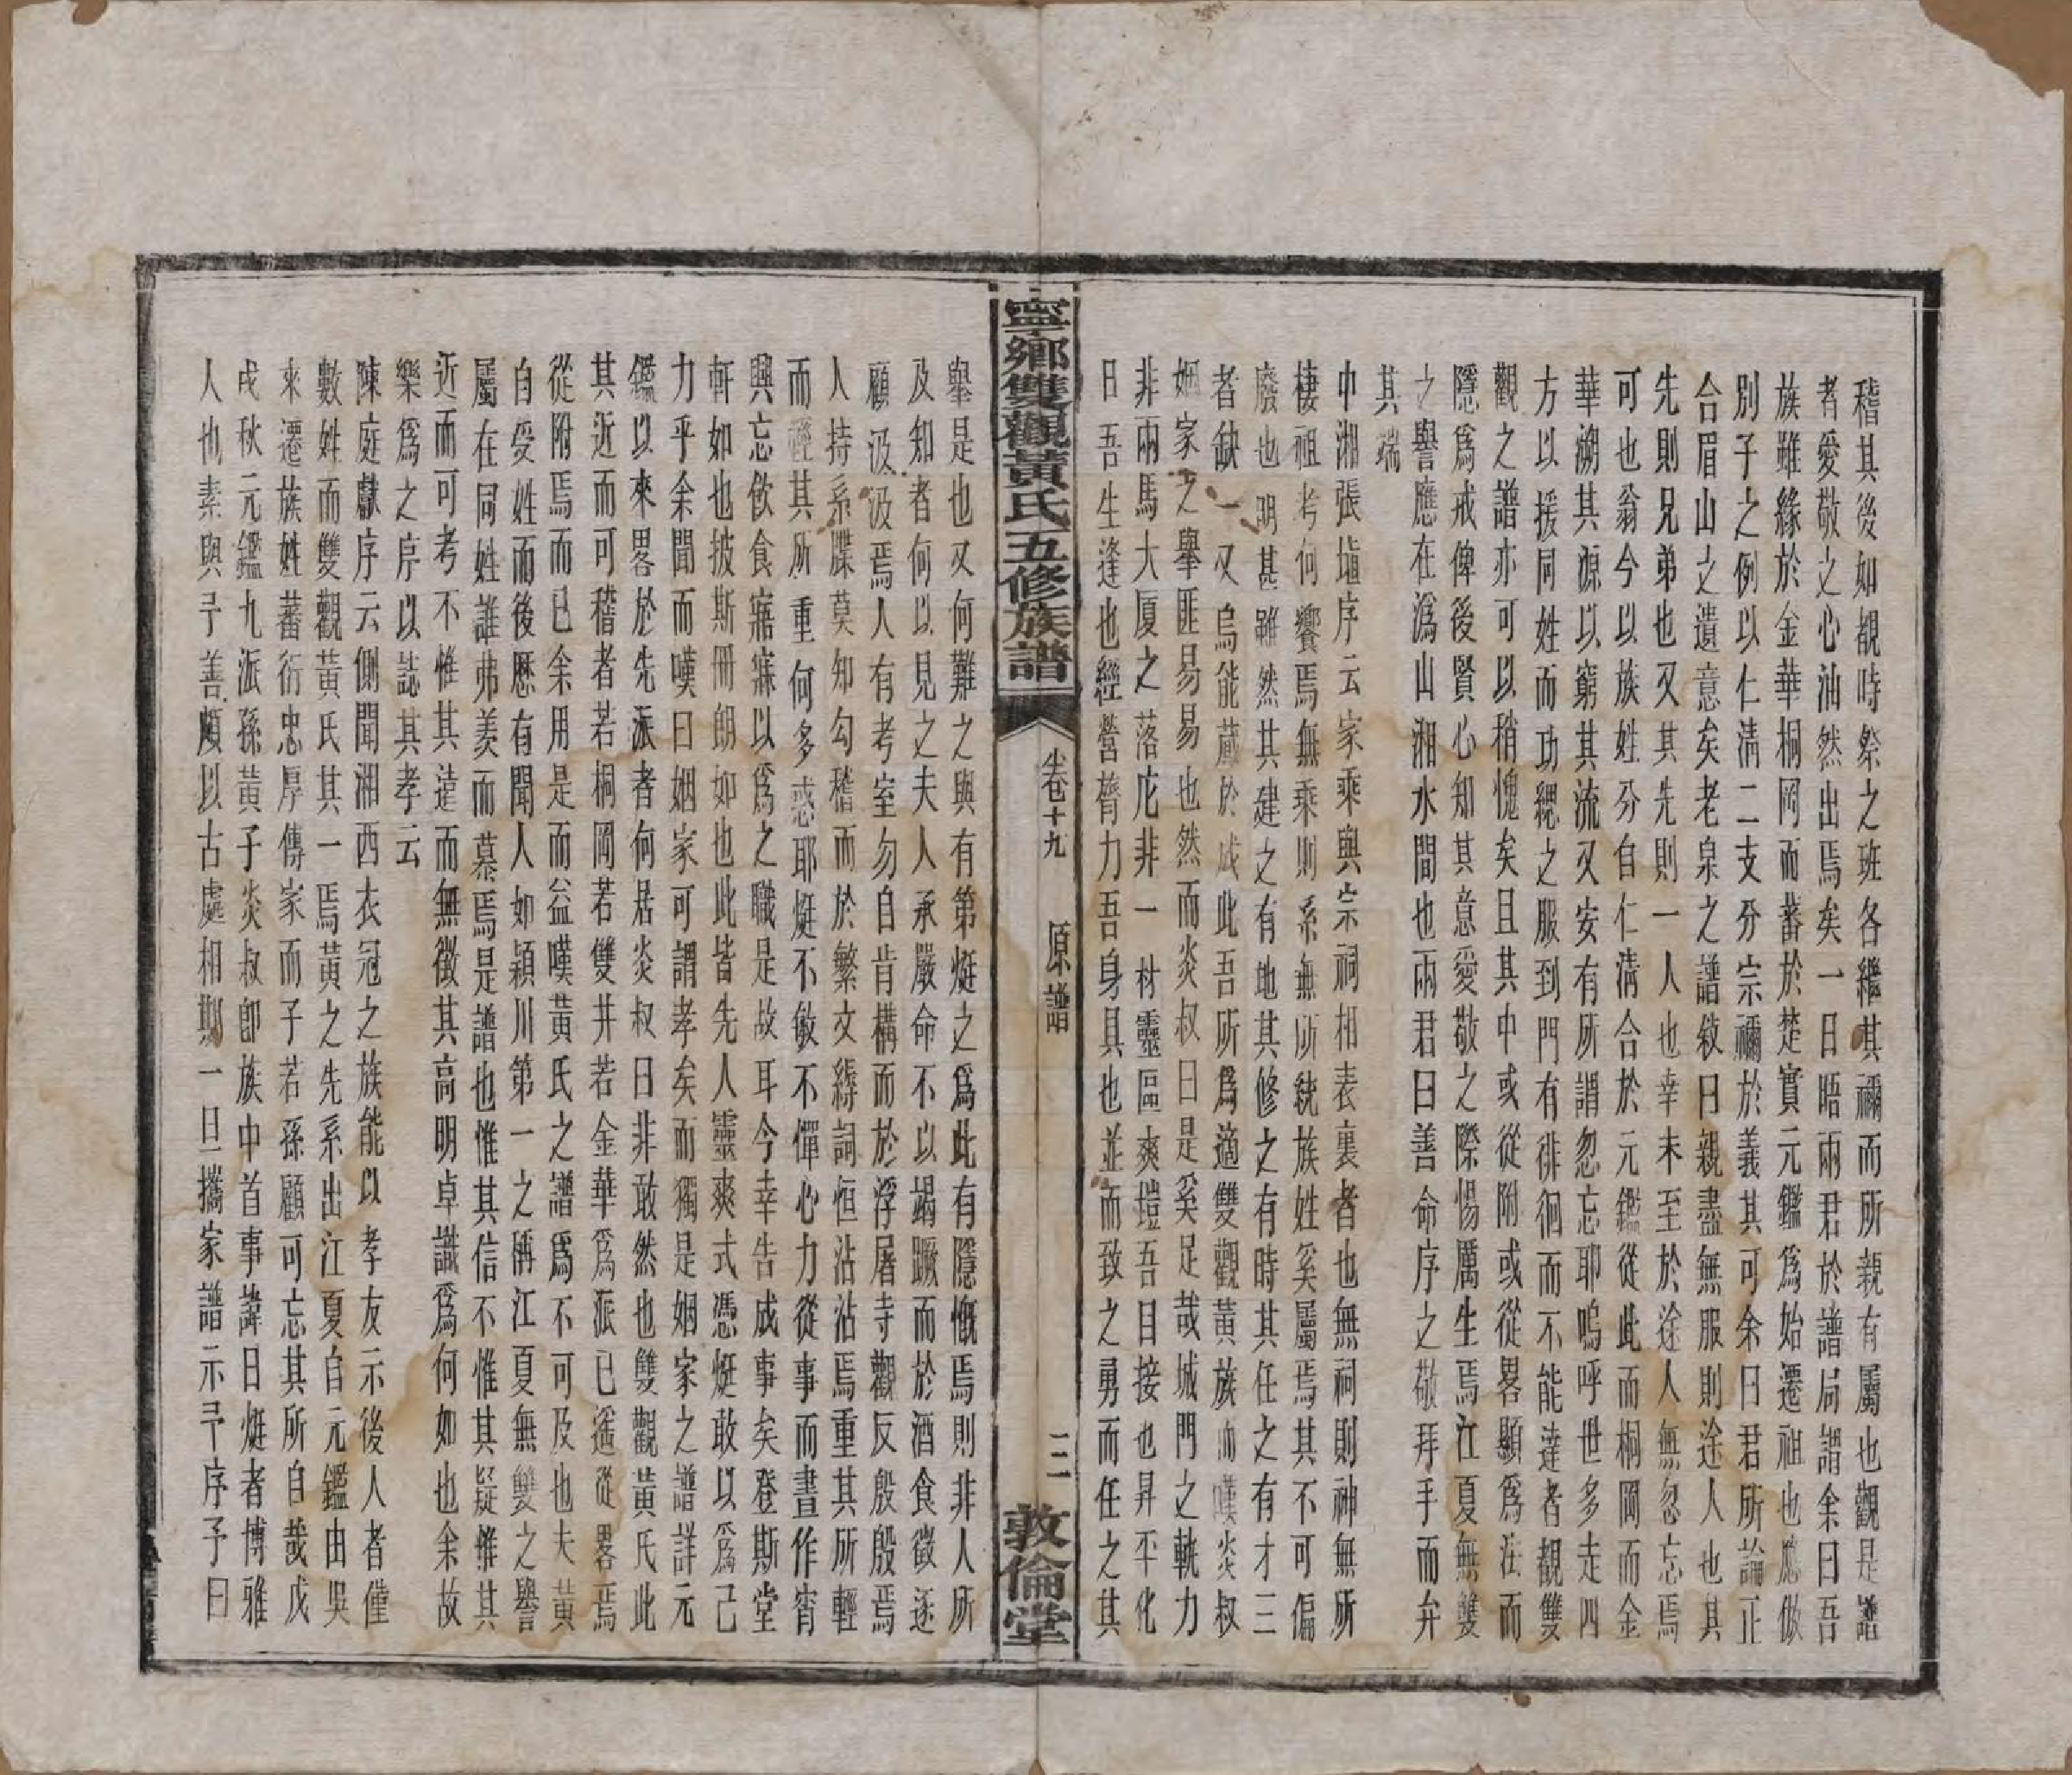 稽其後如覩時祭之班各繼其禰而所親有屬也觀是譜
者愛敬之心油然出焉矣一日晤兩君於譜局謂余曰吾
族雖緣於金華桐岡而蕃於楚實元鑑爲始遷祖也應倣
別子之例以仁清二支分宗禰於義其可余曰君所論正
合眉山之遺意矣老泉之譜敘曰親盡無服則途人也其
先則兄弟也又其先則一人也幸未至於途人無忽忘焉
可也翁今以族姓分自仁清合於元鑑從此而桐岡而金
華溯其源以窮其流又安有所謂忽忘耶嗚呼世多走四
方以援同姓而功緦之服到門有徘徊而不能達者觀雙
觀之譜亦可以稍愧矣且其中或從附或從畧顯爲法而
隱爲戒俾後賢心知其意愛敬之際惕厲生焉江夏無雙
之譽應在潙山湘水間也兩君曰善命序之敬拜手而弁
其端
中湘張塤序云家乘與宗祠相表裏者也無祠則神無所
棲祖考何饗焉無乘則系無所統族姓奚屬焉其不可偏
廢也明甚雖然其建之有地其修之有時其任之有才三
者缺一又烏能蕆於成此吾所爲適雙觀黃族而嘆炎叔
姻家之舉匪易易也然而炎叔曰是奚足哉城門之軌力
非兩馬大厦之落庀非一材靈區爽塏吾目接也昇平化
日吾生逢也經營膂力吾身具也並而致之勇而任之其
寧鄉雙觀黃氏五修族譜
卷十九
原譜
三
敦倫堂
舉是也又何難之與有第煃之爲此有隱慨焉則非人所
及知者何以見之夫人承嚴命不以竭蹶而於酒食徵逐
顧汲汲焉人有考室勿自肯構而於浮屠寺觀反殷殷焉
人持系牒莫知勾稽而於繁文縟詞恒沾沾焉重其所輕
而輕其所重何多惑耶煃不敏不憚心力從事而晝作宵
興忘飲食寤寐以爲之職是故耳今幸告成事矣登斯堂
軒如也披斯冊朗如也此皆先人靈爽式憑煃敢以爲己
力乎余聞而嘆曰姻家可謂孝矣而獨是姻家之譜詳元
鑑以來畧於先派者何居炎叔曰非敢然也雙觀黃氏此
其近而可稽者若桐岡若雙井若金華爲派已遥從畧焉
從附焉而已余用是而益嘆黃氏之譜爲不可及也夫黃
自受姓而後歷有聞人如潁川第一之稱江夏無雙之譽
屬在同姓誰弗羨而慕焉是譜也惟其信不惟其疑惟其
近而可考不惟其遠而無徵其高明卓識爲何如也余故
樂爲之序以誌其孝云
陳庭獻序云側聞湘西衣冠之族能以孝友示後人者僅
數姓而雙觀黃氏其一焉黃之先系出江夏自元鑑由吳
來遷族姓蕃衍忠厚傳家而子若孫顧可忘其所自哉戊
戌秋元鑑九派孫黃子炎叔卽族中首事諱曰煃者博雅
人也素與予善頗以古處相期一日攜家譜示予序予曰